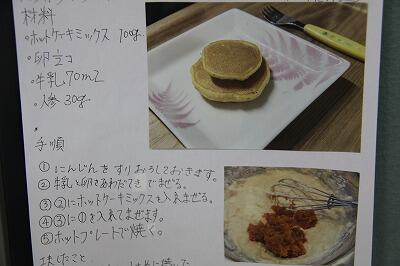 材料
・ホットケーキミックス 100g
・卵
・牛乳 70mL
・人参 30g
手順
①にんじんをすりおろしておきます。
②牛乳と卵をあわだてきでまぜる。
③②にホットケーキミックスを入れまぜる。
④③に①を入れてまぜます。
⑤ホットプレートで焼く。